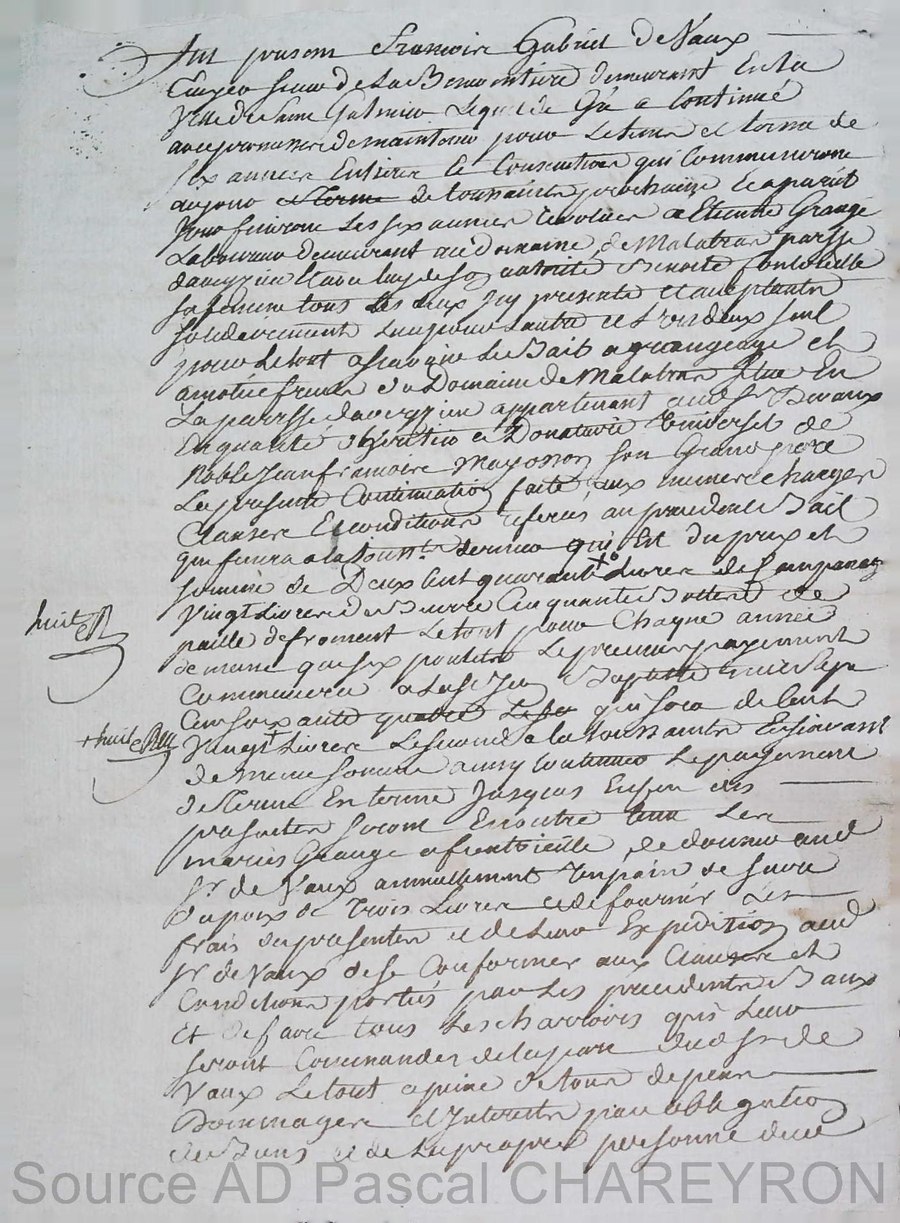 fut présent François Gabriel de Vaux
Ecuyer sieur de La Bernontiere demeurant En la
Ville de Saint Galmier Lequel de Gré a Continué
avec promesse de maintenir pour Le tems et terme de
six années Entieres Et Consecutives qui Commenceront
au jour de toussaints prochaine Et a pareil
Jour finiront Les six années revolues a Etienne Grange
Laboureur demeurant au domaine de Malabran parsse
d'aveyzieu Et a de luy de so autorité Benoite fontvieille
sa femme tous Les deux Icy presents et acceptants
solidairement L'un pour L'autre et L'un deux seul
pour Le tout a scavoir Le Bail a grangeage et
a moitié fruits du Domaine de Malabran situé En
La parsse d'aveyzieu appartenant aud Sr De vaux
En qualité d'heritier et Donataire Universel de
Noble Jean françois Mayosson son Grand pere
La presente Continuation faite aux memes charges
Clauses Et conditions referées au precedent Bail
qui finira a la Touss.ts derniere qui Est du prix et
somme de Deux Cent quarante + Livres de
Vingt Livres de Beurre Cinquante Bottes de
paille de froment Le tout pour Chaque année
de meme que six poulets Le premier payement
Commencera a La St Jean Baptiste mil sept
Cent soixante quatre qui sera de Cent
Vingt + Livres Le second a la toussaints Ensuivant
de meme somme ainsy Continuer Le payement
de Terme En terme Jusques En fin des
presentes seront En outre tenus Les
mariés Grange et fontvieille de donner aud
Sr de Vaux annuellement Un pain de sucre
du poix de Trois Livres et de fournir Les
frais des presentes et de Leur Expedition aud
Sr de Vaux de se Conformer aux Clauses et
Conditions portées par Les precedents Baux
Et de faire tous Les charrois qui Leur
seront Commandés de la part dud Sr de
Vaux Le tout a peine de tous depens
Dommages Et Interets par obligation
des Biens et de La propre personne dud
huit
+ huit
Source AD Pascal CHAREYRON